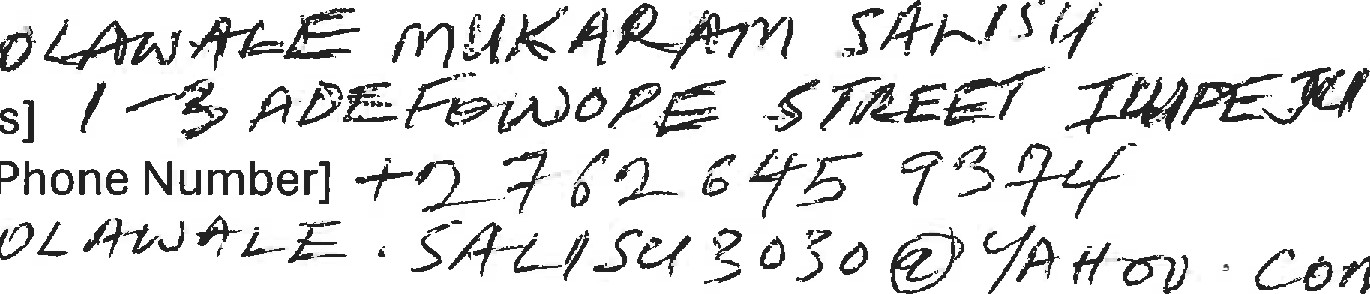 OLAWALE MUKARAM SALISU
s] 1-3 ADEFOWOPE STREET ILUPEJU
Phone Number] +27 62 645 9374
OLAWALE.SALISU3030@YAHOO.COM